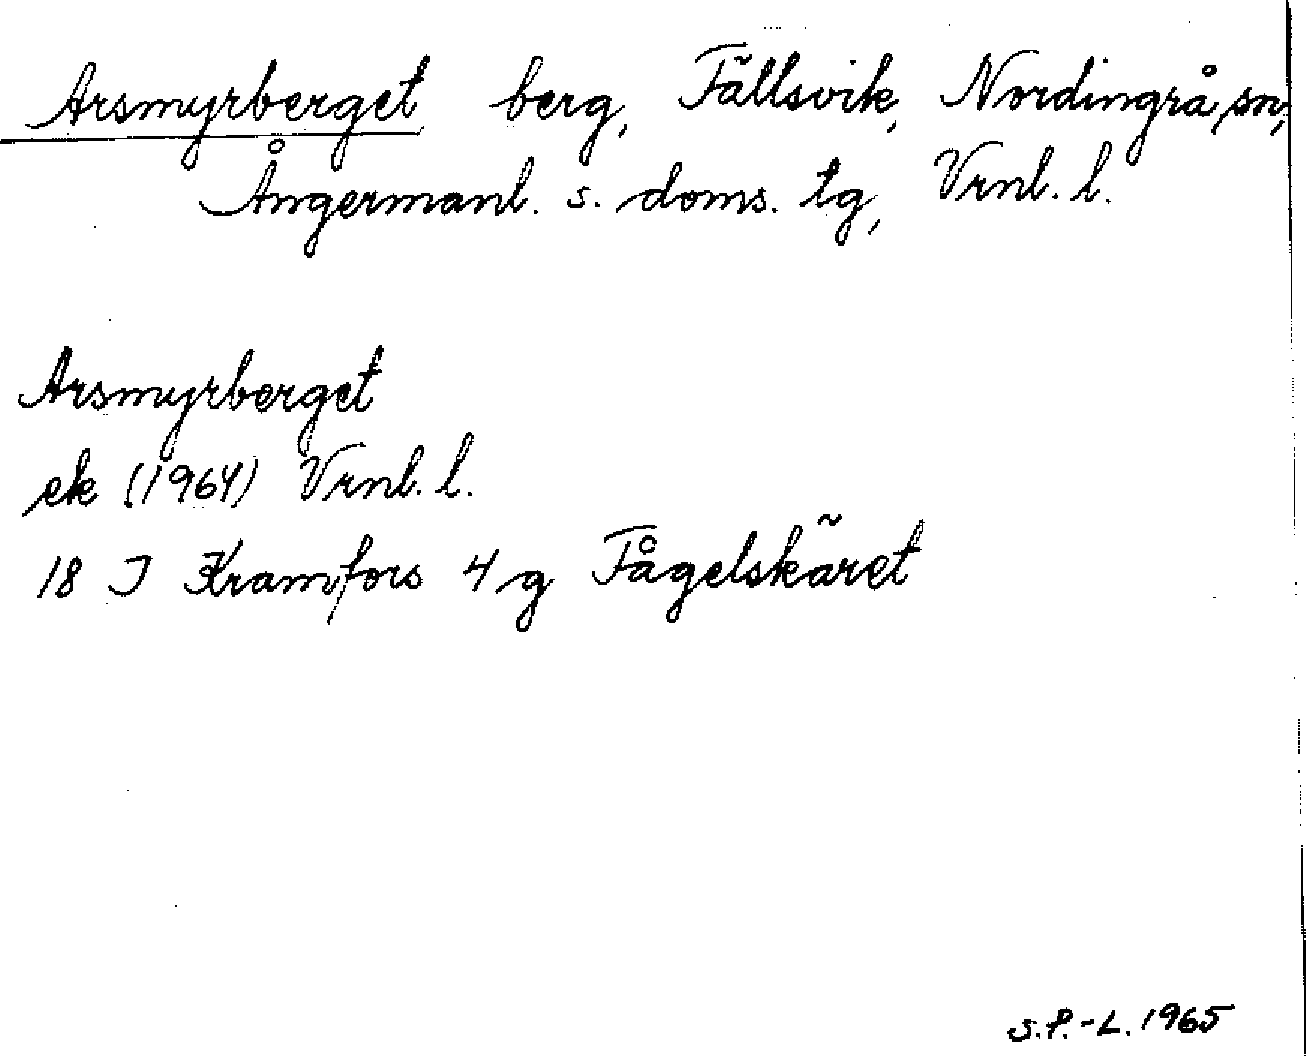 Arsmyrberget berg, Fällsvik, Nordingrå sn,
Ångermanl. s. doms. tg, Vrnl. l.
Arsmyrberget
ek (1964) Vrnl. l.
18 I Kramfors 4 g Fågelskäret
S.P.-L. 1965